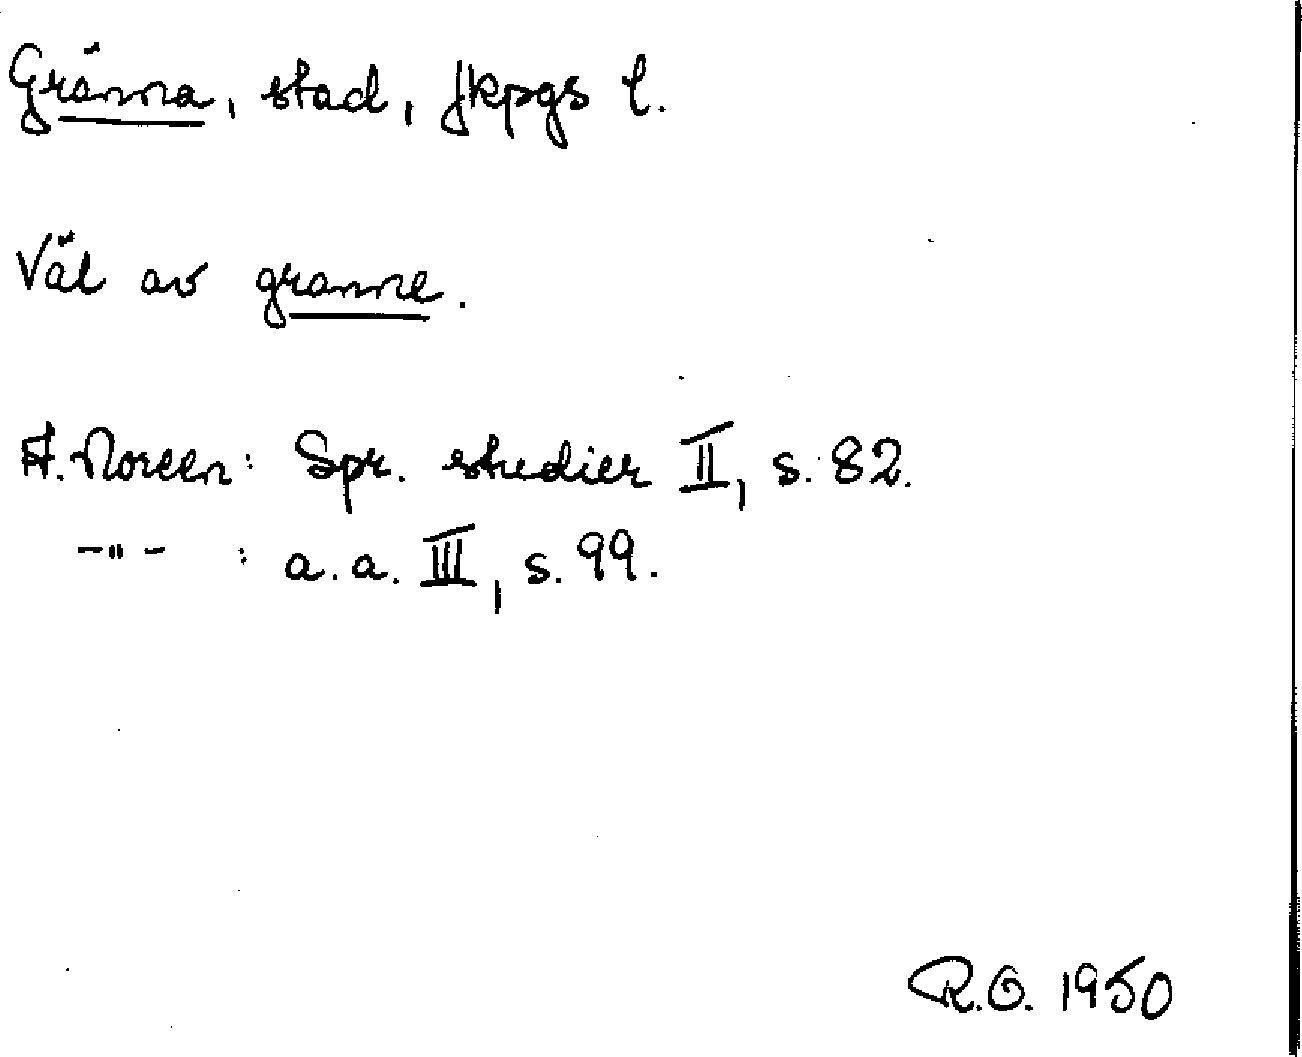 Gränna, stad, Jkpgs l.
Väl av granne.
A. Noreen: Spr. studier II, s. 82.
-"- : a. a. III, s. 99.
R.O. 1950